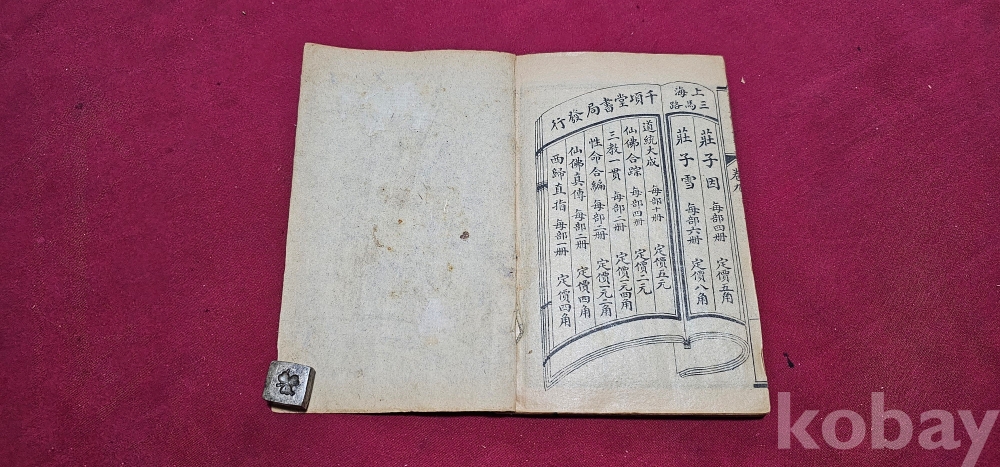 上海
三馬路
莊子因 每部四册 定價五角
莊子雪 每部六册 定價八角
千頃堂書局發行
道統大成 每部十册 定價五元
仙佛合踪 每部四册 定價二元
三教一貫 每部二册 定價一元四角
性命合編 每部二册 定價一元二角
仙佛真傳 每部二册 定價四角
西歸直指 每部一册 定價四角
卷九
kobay